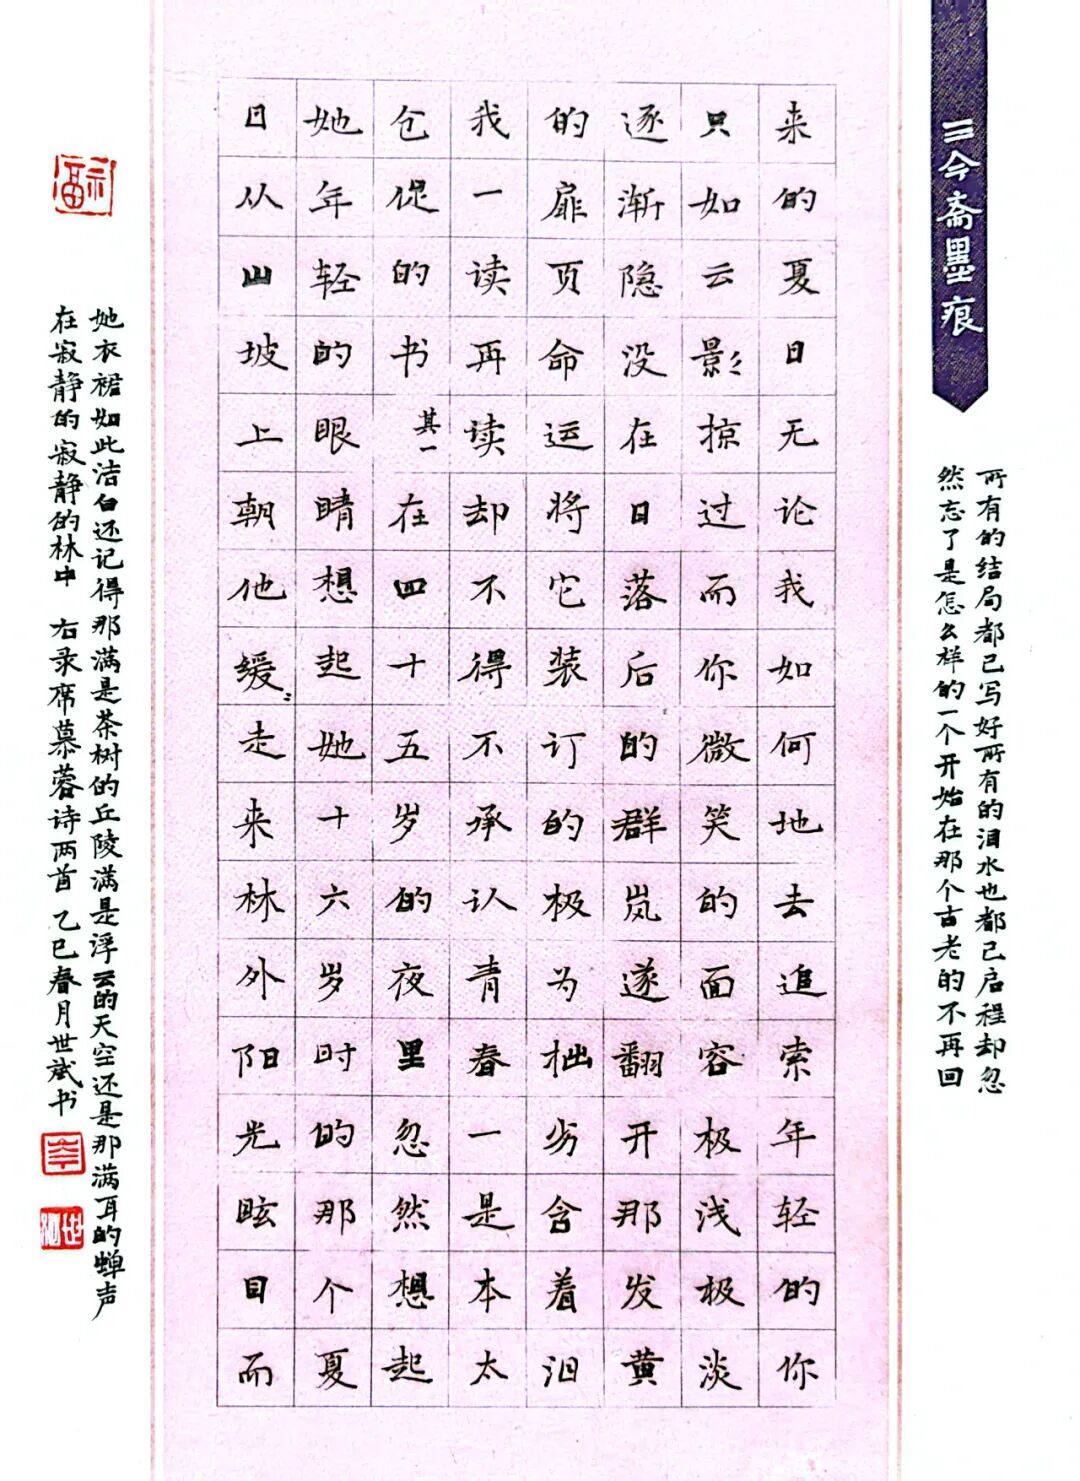 三今斋墨痕
所有的结局都已写好所有的泪水也都已启程却忽
然忘了是怎么样的一个开始在那个古老的不再回
来的夏日无论我如何地去追索年轻的你
只如云影掠过而你微笑的面容极浅极淡
逐渐隐没在日落后的群岚遂翻开那发黄
的扉页命运将它装订的极为拙劣含着泪
我一读再读却不得不承认青春一是本太
仓促的书 其一 在四十五岁的夜里忽然想起
她年轻的眼睛想起她十六岁时的那个夏
日从山坡上朝他缓〻走来林外阳光眩目而
她衣裙如此洁白还记得那满是茶树的丘陵满是浮云的天空还是那满耳的蝉声
在寂静的寂静的林中 右录席慕蓉诗两首 乙巳春月世斌书